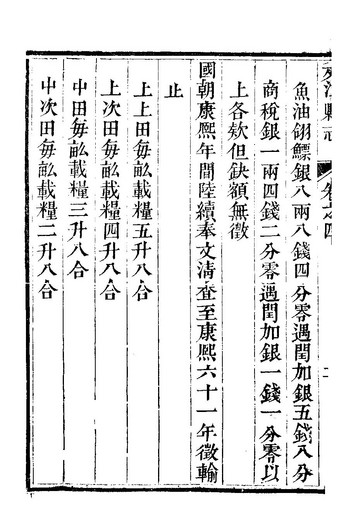 縣志 卷之四
魚油翎鰾銀八兩八錢四分零遇閏加銀五錢八分
商稅銀一兩四錢二分零遇閏加銀一錢一分零以
上各欵但缺額無徵
國朝康熙年間陸續奉文清查至康熙六十一年徵輸
止
上上田每畝載糧五升八合
上次田每畝載糧四升八合
中田每畝載糧三升八合
中次田每畝載糧二升八合